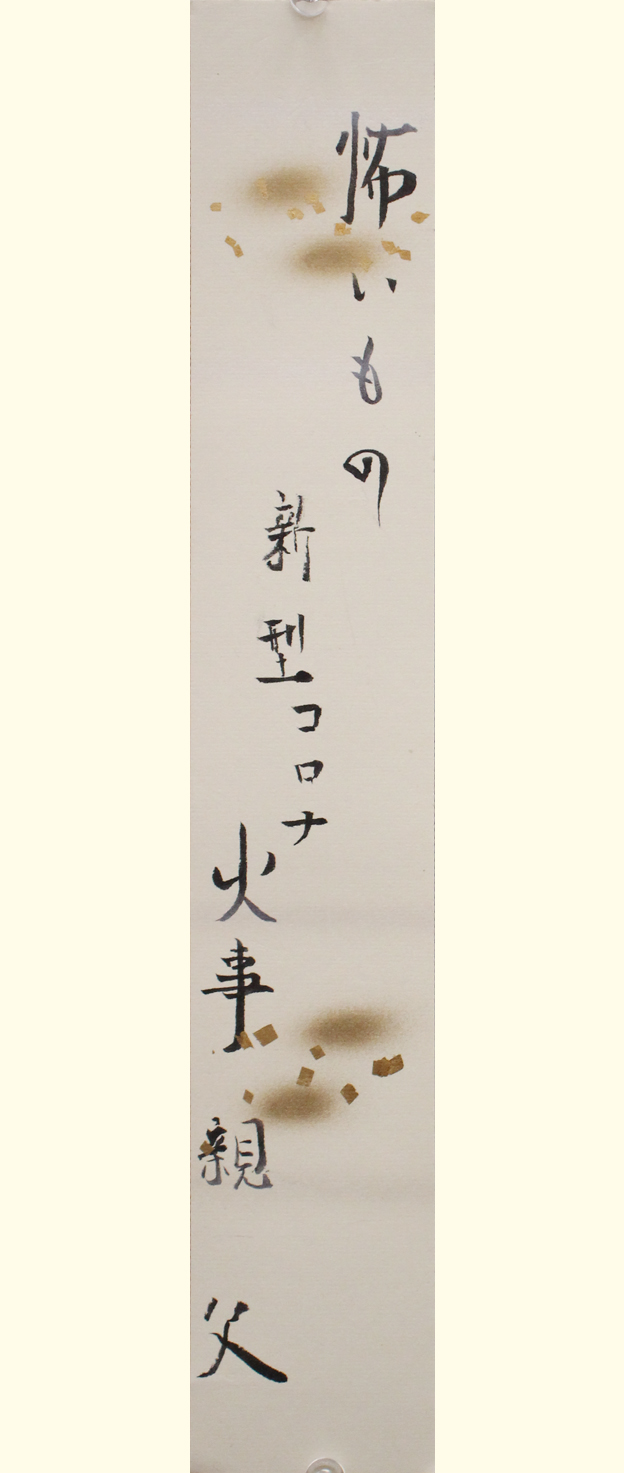 怖いもの
新型コロナ
火事親父